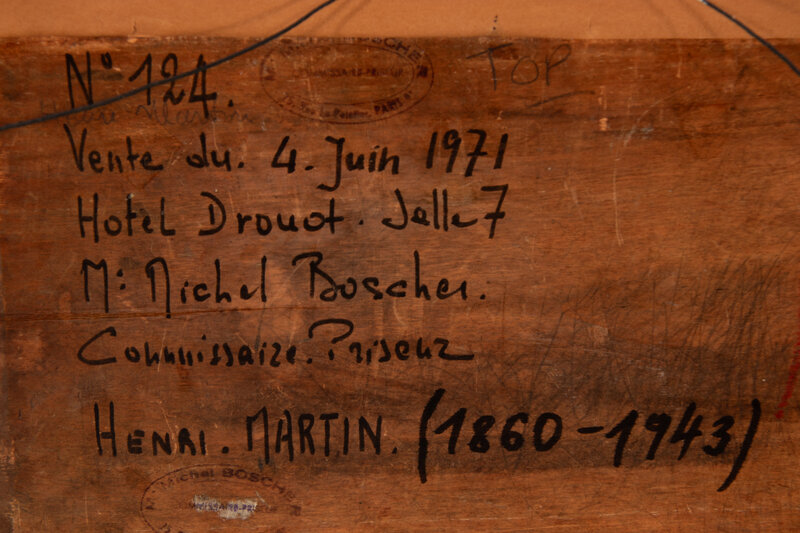 N° 124.
TOP
COMMISSAIRE-PRISEUR
PARIS
Vente du. 4. Juin 1971
Hotel Drouot. Salle 7
M: Michel Boscher.
Commissaire. Priseur
HENRI. MARTIN. (1860-1943)
Me Michel BOSCHER